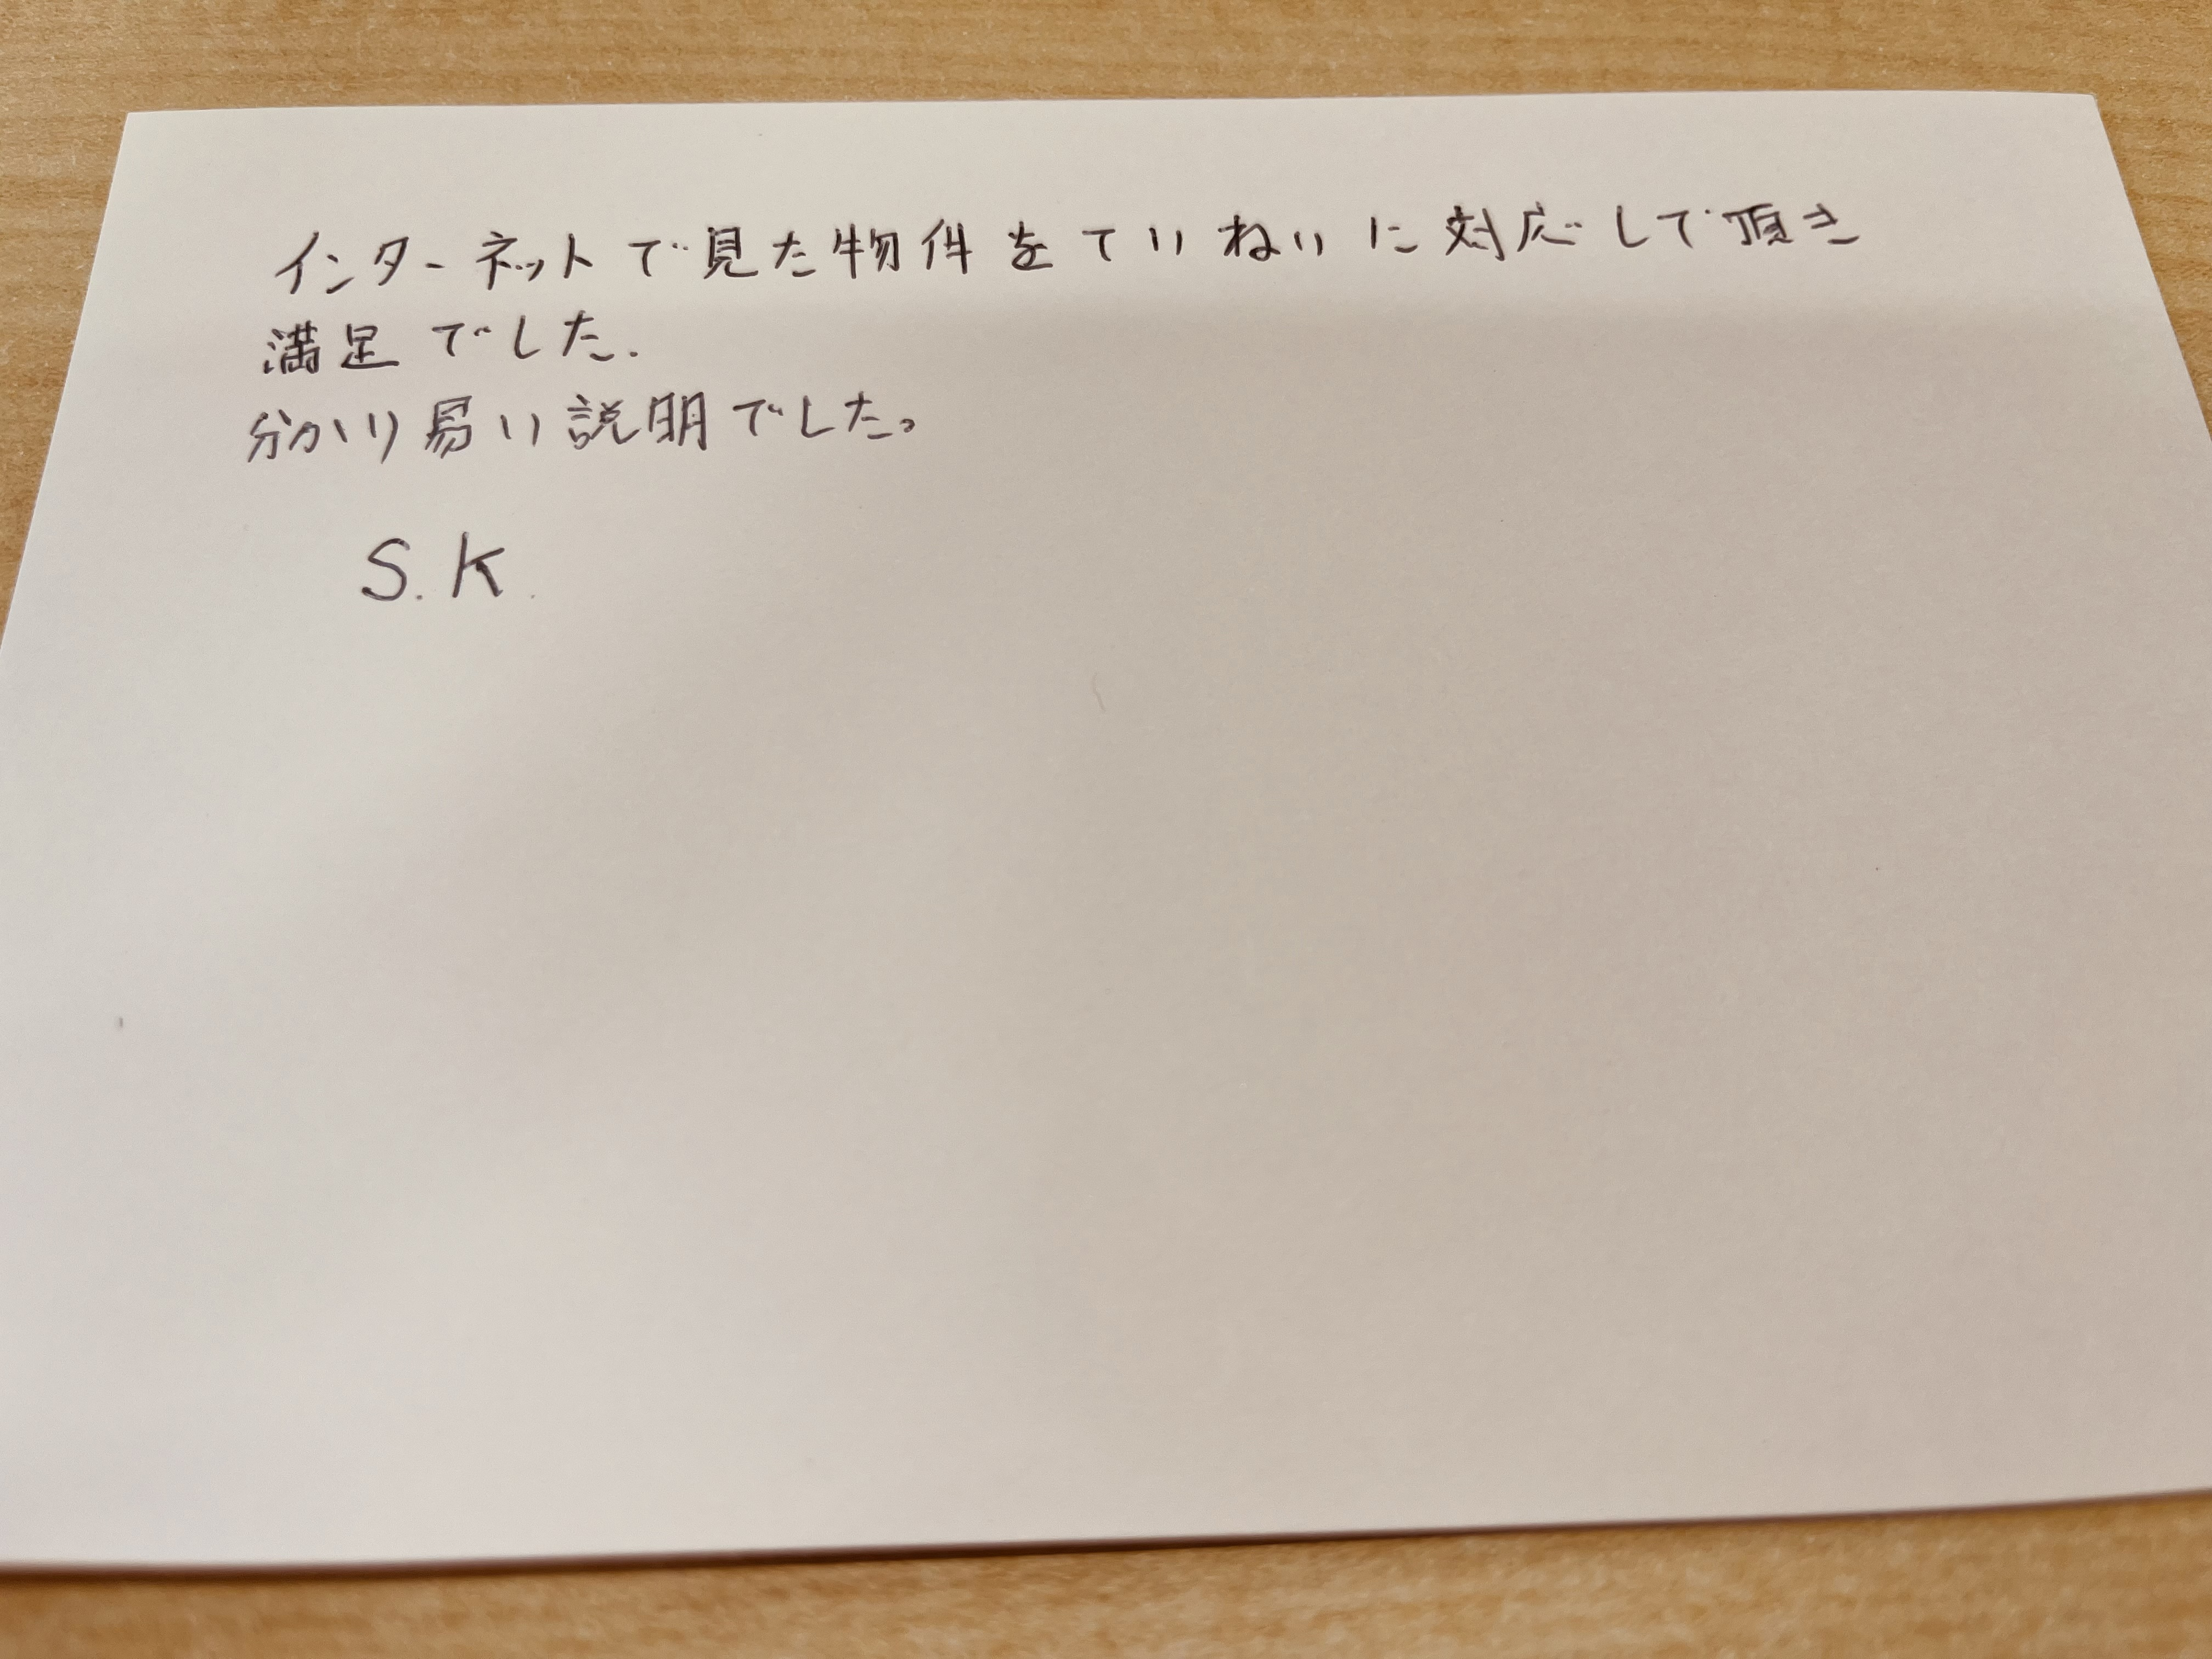 インターネットで見た物件をていねいに対応して頂き
満足でした.
分かり易い説明でした。
S.K.